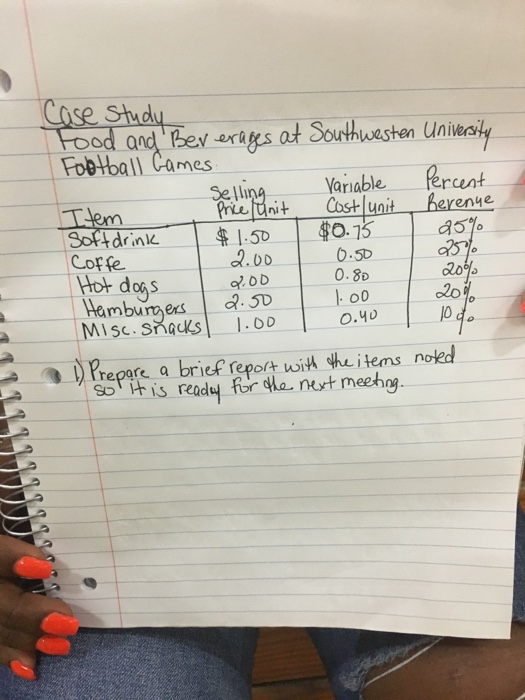 Case Study
Food and Beverages at Southwesten University
Football Games
Item Selling Price/Unit Variable Cost/unit Percent Revenue
Soft drink $1.50 $0.75 25%
Coffe 2.00 0.50 25%
Hot dogs 2.00 0.80 20%
Hamburgers 2.50 1.00 20%
Misc. snacks 1.00 0.40 10%
1) Prepare a brief report with the items noted
so it is ready for the next meeting.